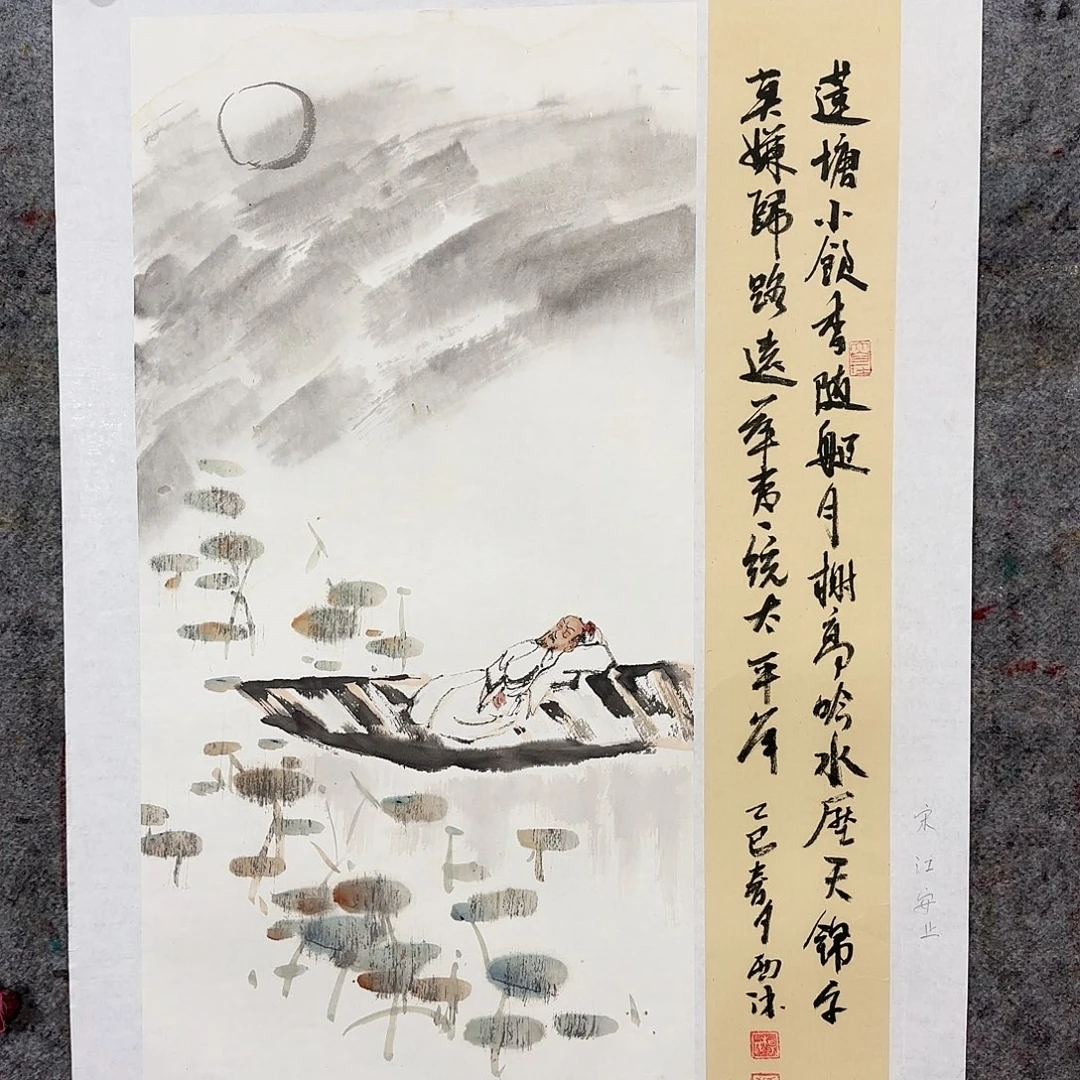 蓮塘小飲香随艇月榭高吟水壓天錦字
莫嫌歸路遠華夷一統太平年
乙巳春月西沐
宋江安止